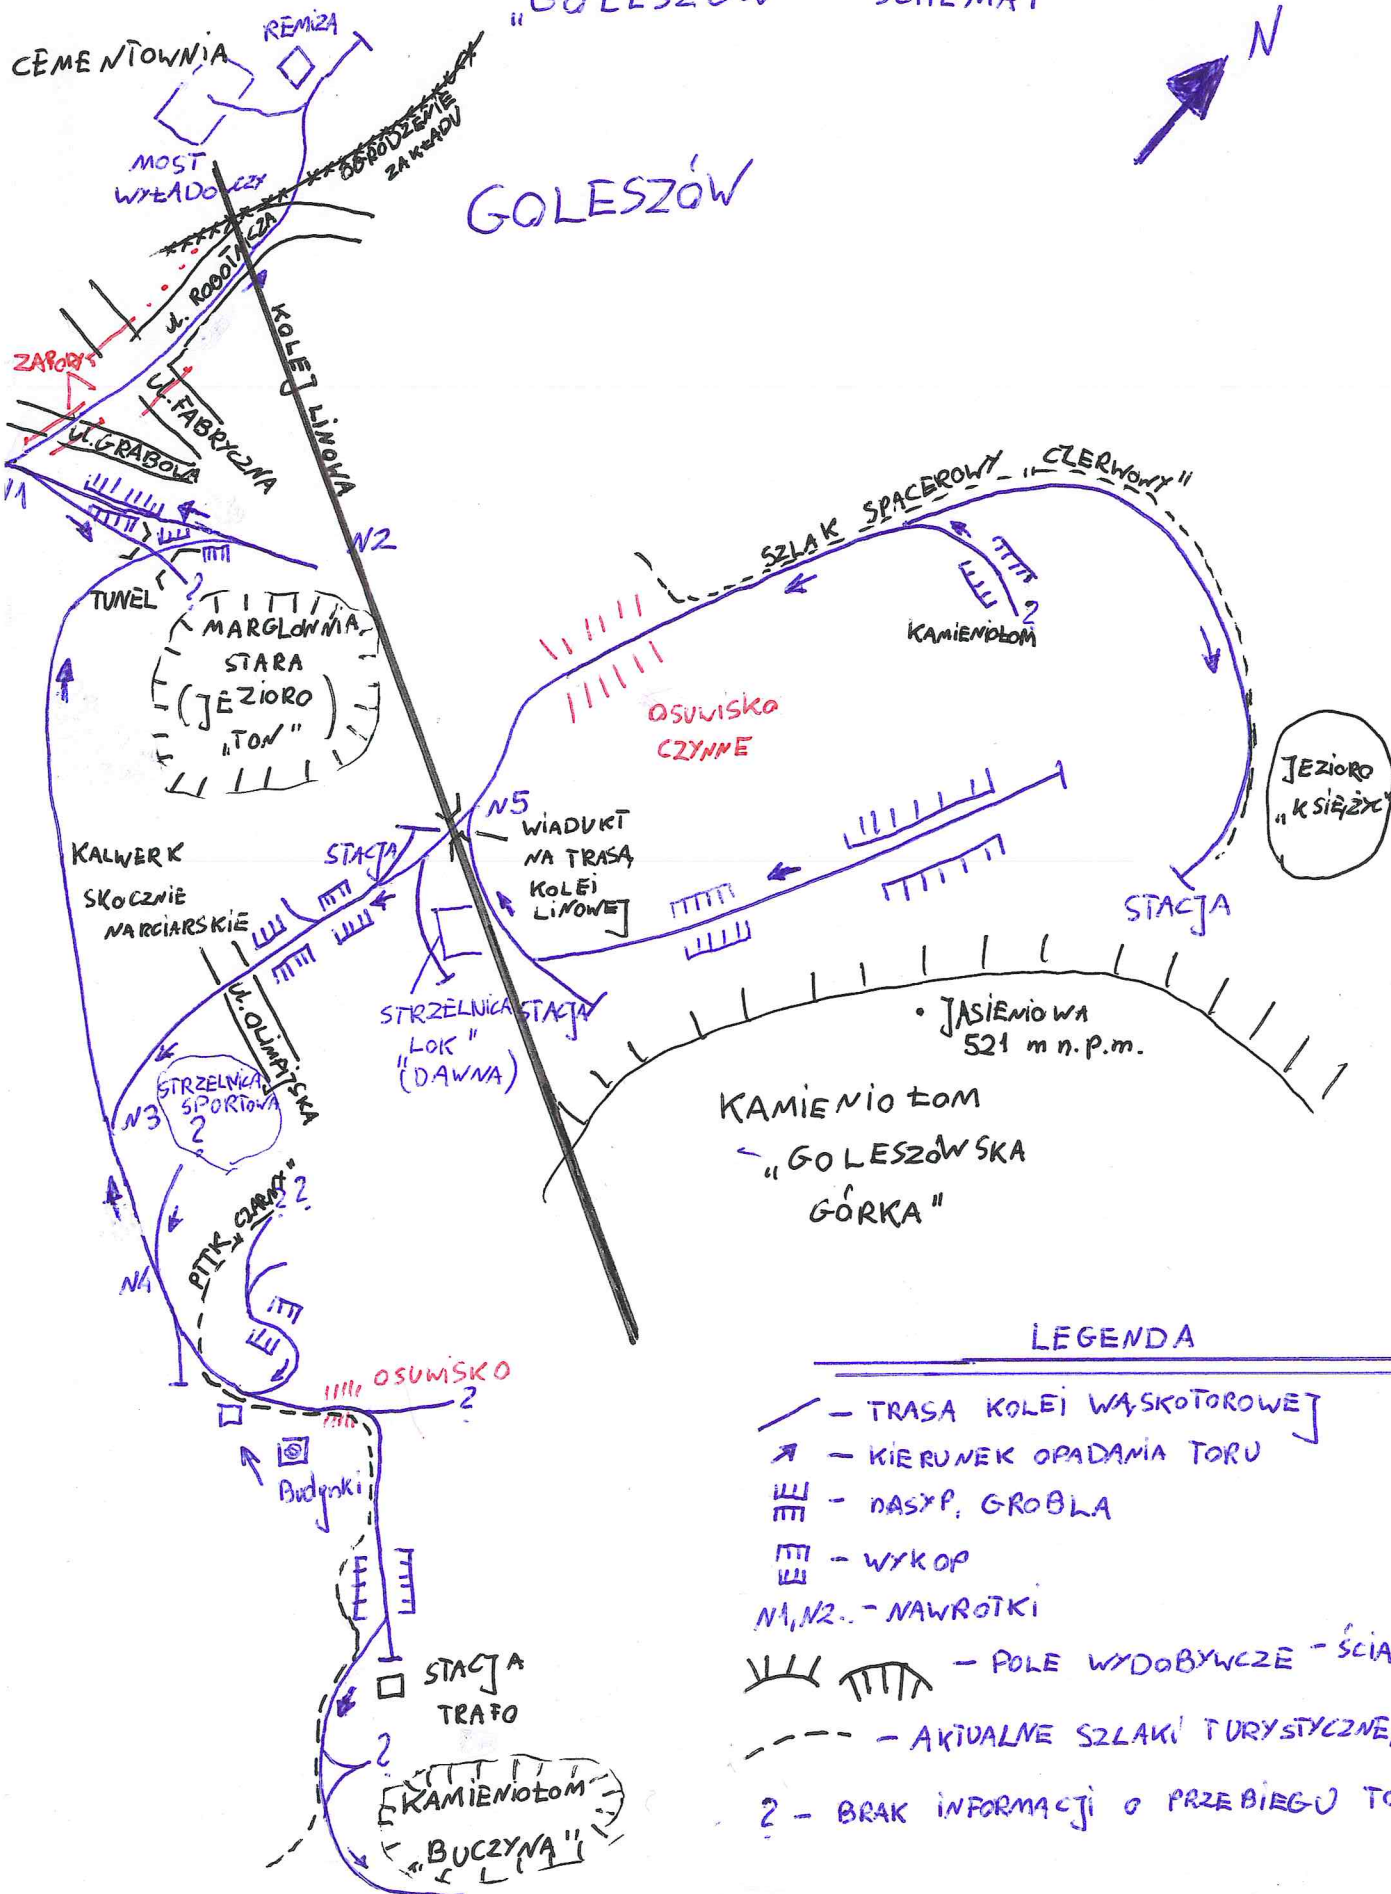 „GOLESZÓW" SCHEMAT
REMIZA
CEMENTOWNIA
N
MOST
WYŁADOWCZY
OGRODZENIE
ZAKŁADU
GOLESZÓW
ul. ROBOTNICZA
KOLEJ LINOWA
ZAPORY
ul. FABRYCZNA
ul. GRABOWA
N1
N2
TUNEL
?
MARGLOWNIA
STARA
(JEZIORO)
„TON"
SZLAK SPACEROWY „CZERWONY"
?
KAMIENIOŁOM
OSUWISKO
CZYNNE
JEZIORO
„KSIĘŻYC"
STACJA
N5
WIADUKT
NA TRASĄ
KOLEI
LINOWEJ
STACJA
KALWERK
SKOCZNIE
NARCIARSKIE
ul. OLIMPIJSKA
STRZELNICA
„LOK"
(DAWNA)
STACJA
JASIENIOWA
521 m n.p.m.
KAMIENIOŁOM
„GOLESZOWSKA
GÓRKA"
STRZELNICA
SPORTOWA
?
N3
PTTK „CZARNY"
? ?
N4
OSUWISKO
?
Budynki
STACJA
TRAFO
?
KAMIENIOŁOM
„BUCZYNA"
LEGENDA
- TRASA KOLEI WĄSKOTOROWEJ
- KIERUNEK OPADANIA TORU
- NASYP, GROBLA
- WYKOP
N1, N2.. - NAWROTKI
- POLE WYDOBYWCZE - ŚCIA
- AKTUALNE SZLAKI TURYSTYCZNE,
? - BRAK INFORMACJI O PRZEBIEGU TO